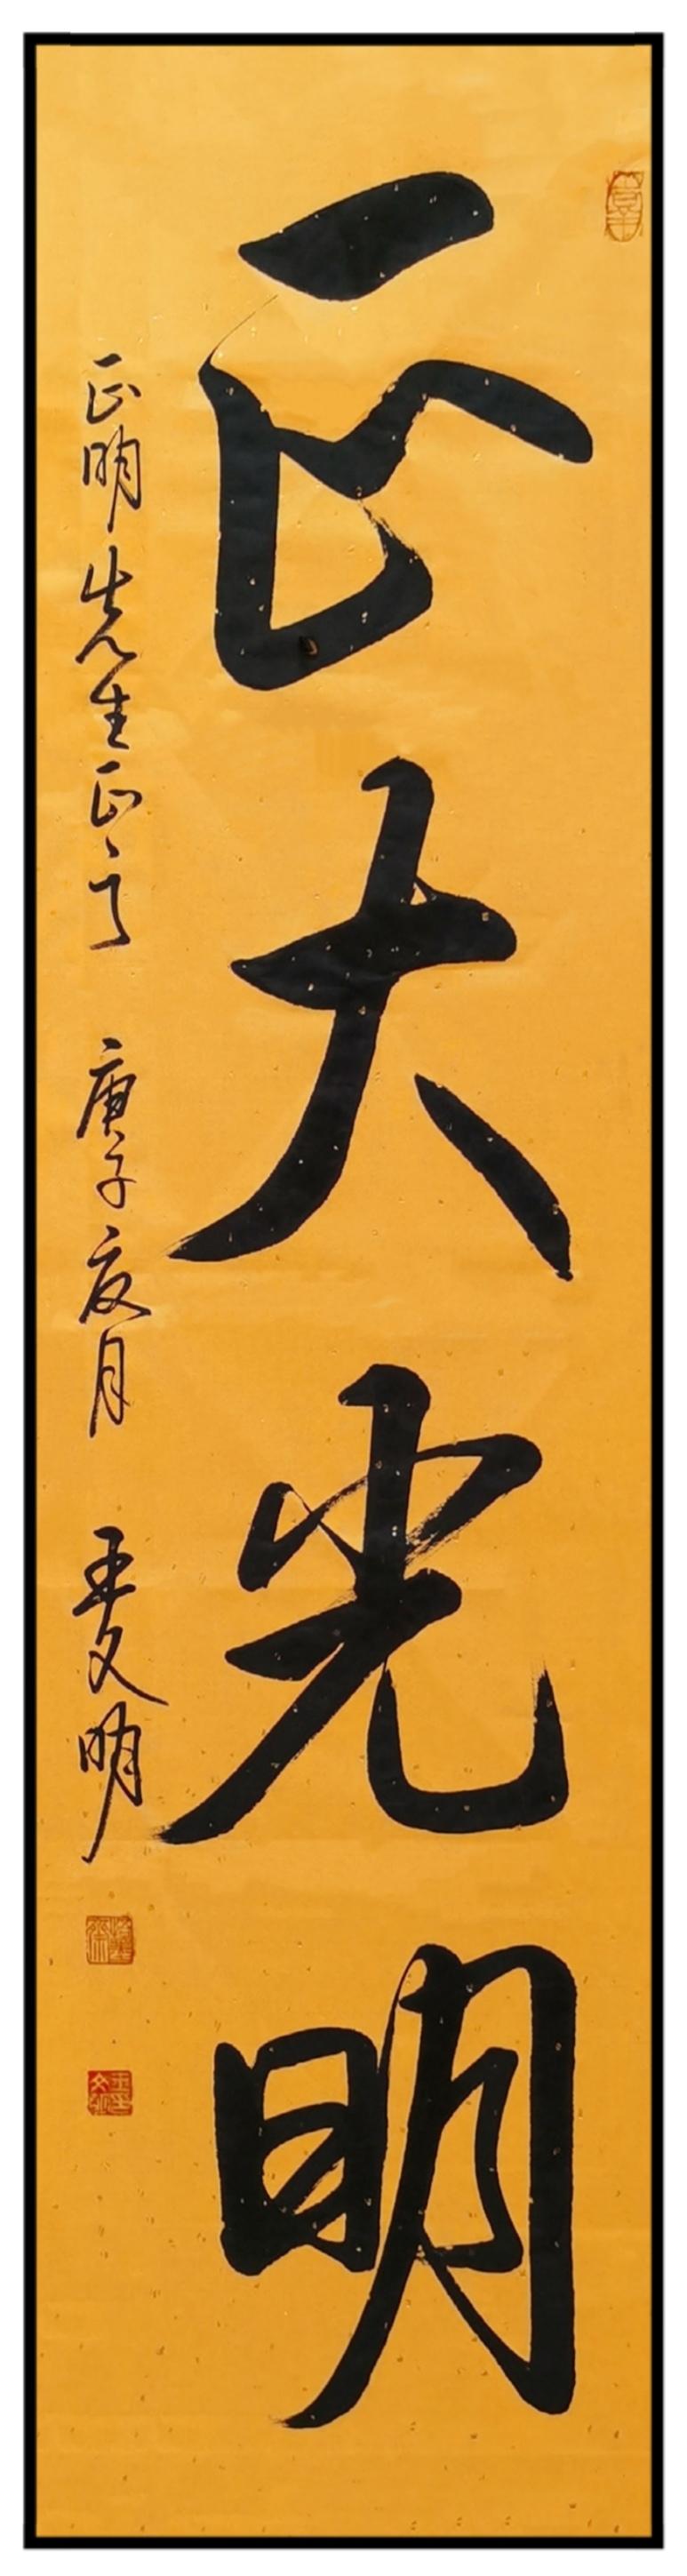 正大光明
正明先生正之 庚子夏月 王文明